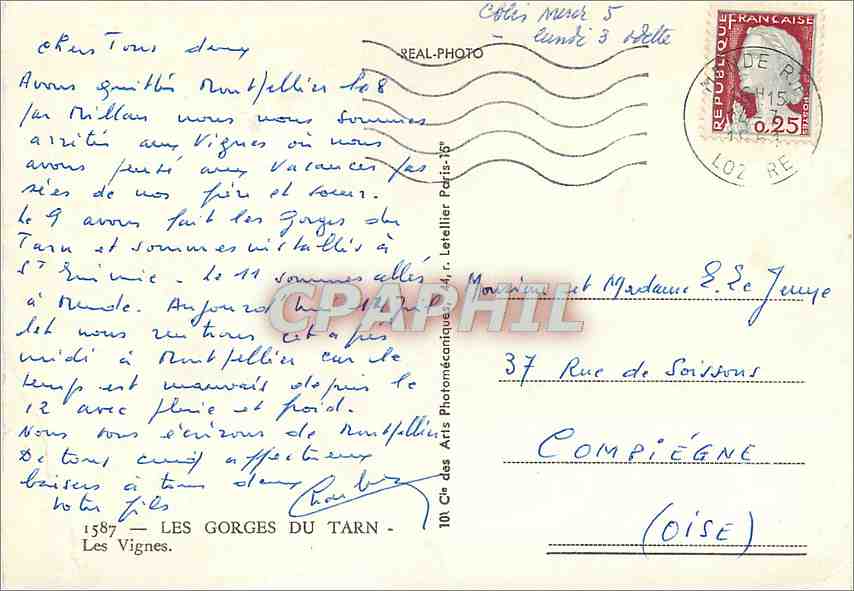 Colis merc 5
- lundi 3 odette
REAL-PHOTO
REPUBLIQUE FRANÇAISE
0,25
MENDE
LOZERE
chers Tous deux
Avons quitté Montpellier le 8
par Millau nous nous sommes
arrêtés aux Vignes où nous
avons pensé aux vacances pas
sées de nos père et soeur.
Le 9 avons fait les Gorges du
Tarn et sommes installés à
St Enimie. Le 11 sommes allés
à Mende. Aujourd'hui 14 juil
let nous rentrons cet après
midi à Montpellier car le
temps est mauvais depuis le
12 avec pluie et froid.
Nous vous écrirons de Montpellier
De tous cinq affectueux
baisers à tous deux
votre fils
Monsieur et Madame E. Le Jeune
37 Rue de Soissons
COMPIÉGNE
(OISE)
CPAPHIL
Cie des Arts Photomécaniques, 44, r. Letellier Paris-15e
1587 — LES GORGES DU TARN -
Les Vignes.